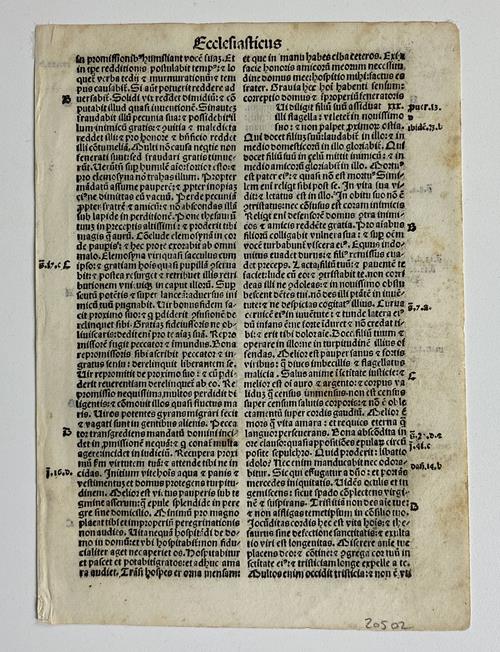 Ecclesiasticus
in promissionib⁹ humiliant vocē suā. Et
in tpe redditionis postulabit temp⁹: ⁊ lo
quet verba tedij ⁊ murmurationū: ⁊ tem
pus causabit. Si aūt potuerit reddere ad
B
versabit. Solidi vix reddet dimidiū: ⁊ cō
putabit illud quasi inuentionē. Sin aūt
fraudabit illū pecunia sua: ⁊ possidebit il
lum inimicū gratis: ⁊ ⁊ maledicta
reddet illi: ⁊ pro honore ⁊ bñficio reddet
illi cōtumeliā. Multi nō causa negtie non
fenerati sunt: sed fraudari gratis timue
elemosyna nō trahas illum. Propter
mādatū assume pauperē: ⁊ ppter inopiaz
ei⁹ ne dimittas eū vacuū. Perde pecuniā
ppter fratrē ⁊ amicū: ⁊ nō abscondas illā
sub lapide in perditionē. Pone thesaurū
tuuz in preceptis altissimi: ⁊ proderit tibi
magis q̃ aurū. Cōclude elemosynā in cor
de paupis: ⁊ hec pro te exorabit ab omni
malo. Elemosyna viri quasi sacculus cum
C
ipso: ⁊ gratiam hois quasi pupillā
bit: ⁊ postea resurget ⁊ retribuet illis retri
butionem vnicuiq̃ in caput illorū. Sup
scutū potētis ⁊ super lanceā: aduersus ini
micū tuū pugnabit. Vir bonus fidem fa
cit proximo suo: ⁊ q̃ pdiderit
relinquet sibi. Gratiaz fideiussoris ne ob
liuiscaris: dedit eni pro te aiaz suā. Repro
missorē fugit peccator ⁊ immundus. Bona
repromissoris sibi ascribit peccator ⁊ in
gratus sensu derelinquet liberantem se.
Vir repromittit de proximo suo: ⁊ cū pdi
derit reuerentiam derelinquet ab eo. Re
promissio nequissima multos perdidit di
ligentes: ⁊ cōmouit illos quasi fluctus ma
ris. Viros potentes gyrans migrari fecit
⁊ vagati sunt in gentibus alienis. Pecca
D
tor transgrediens mandatū domini incidet
in pmissionē nequā: ⁊ q̃ conat multa
agere incidet in iudiciū. Recupera proxi
mū virtutem tuā: ⁊ attende tibi ne in
cidas. Initium vite hois aqua ⁊ panis ⁊
vestimentuz ⁊ domus protegens turpitu
dinem. Melior est victus pauperis sub te
gmine asserum: q̃ epule splendide in pere
gre sine domicilio. Minimū pro magno
placeat tibi ⁊ improperiū peregrinationis
non audies. Vita nequa hospitādi de do
mo in domū: ⁊ vbi hospitabit non fidu
cialiter aget nec aperiet os. Hospitabitur
et pascet et potabit ingratos: et adhuc ama
ra audiet. Trāsi hospes ⁊ orna mensam
et que in manu habes ciba ceteros. Exi a
facie honoris amicorū meorum necessitu
dine domus mee: hospitio mihi factus est
frater. Grauia hec hoi habenti sensum:
correptio domus ⁊ improperiū feneratoris
xxx.
Qui diligit filiū suū assiduat
illi flagella: vt letet in nouissimo
suo: ⁊ non palpet proximoꝝ ostia.
Qui docet filium suū: laudabit in illo: ⁊ in
medio domesticorū in illo gloriabit. Qui
docet filiū suū in zelū mittit inimicū: ⁊ in
medio amicorū gloriabit in illo. Mortu⁹
est pater ei⁹: ⁊ quasi nō est mortu⁹. Simi
lem eni reliqt sibi post se. In vita sua vi
dit: ⁊ letatus est in illo. In obitu suo nō ē
cōtristatus: nec cōfusus est coram inimicis
Reliqt eni defensorē domus cōtra inimi
cos: ⁊ amicis reddētē gratiā. Pro aiabus
filiorū colligabit vulnera sua: ⁊ sup oēm
B
vocē turbabunt viscera ei⁹. Equus indo
mitus euadet durus: ⁊ fili⁹ remissus eua
det preceps. Lacta filiū tuū: ⁊ pauentē te
faciet: lude cū eo: ⁊ cōtristabit te. non corri
deas illi ne doleas: ⁊ in nouissimo obstu
pescent dētes tui. nō des illi ptātē in iuue
tute: ⁊ ne despicias cogitat⁹ illius. Curua
ceruicē ei⁹ in iuuētute: ⁊ tunde latera ei⁹
dū infans ē: ne forte induret ⁊ nō credat ti
bi: ⁊ erit tibi dolor aie. Doce filiū tuum ⁊
operare in illo: ne in turpitudinē illius of
fendas. Melior est pauper sanus ⁊ fortis
virib⁹: q̃ diues imbecillis ⁊ flagellatus
malicia. Salus anime ī scītitate iusticie: ⁊
C
melior est oi auro ⁊ argento: ⁊ corpus va
lidū: q̃ census immensus. non est census
super censum salutis corporis: ⁊ nō ē oble
ctamentū super cordis gaudiū. Melior ē
mors q̃ vita amara: ⁊ requies eterna q̃
languor perseuerans. Bona abscōdita in
ore clauso: quasi appositiōes epularū circū
posite sepulchro. Quid proderit libatio
idolo? Nec enim manducabit nec odora
bitur. Sic qui effugatur a dño: ⁊ portās
mercedes iniquitatis. Vidēs oculis et in
gemiscens: sicut spado cōplectens virgi
nē ⁊ suspirans. Tristitiā non des aie tue:
D
⁊ non affligas temetipsum in consilio tuo
Jocūditas cordis hec est vita hois: ⁊ the
saurus sine defectione sanctitatis: ⁊ exulta
tio viri est longeuitas. Miserere aie tue
placens deo: ⁊ cōtine: ⁊ cōgrega cor tuū in
scītitate ei⁹: ⁊ tristiciam longe expelle a te.
Multos enim occidit tristicia: ⁊ non ē vti
20502